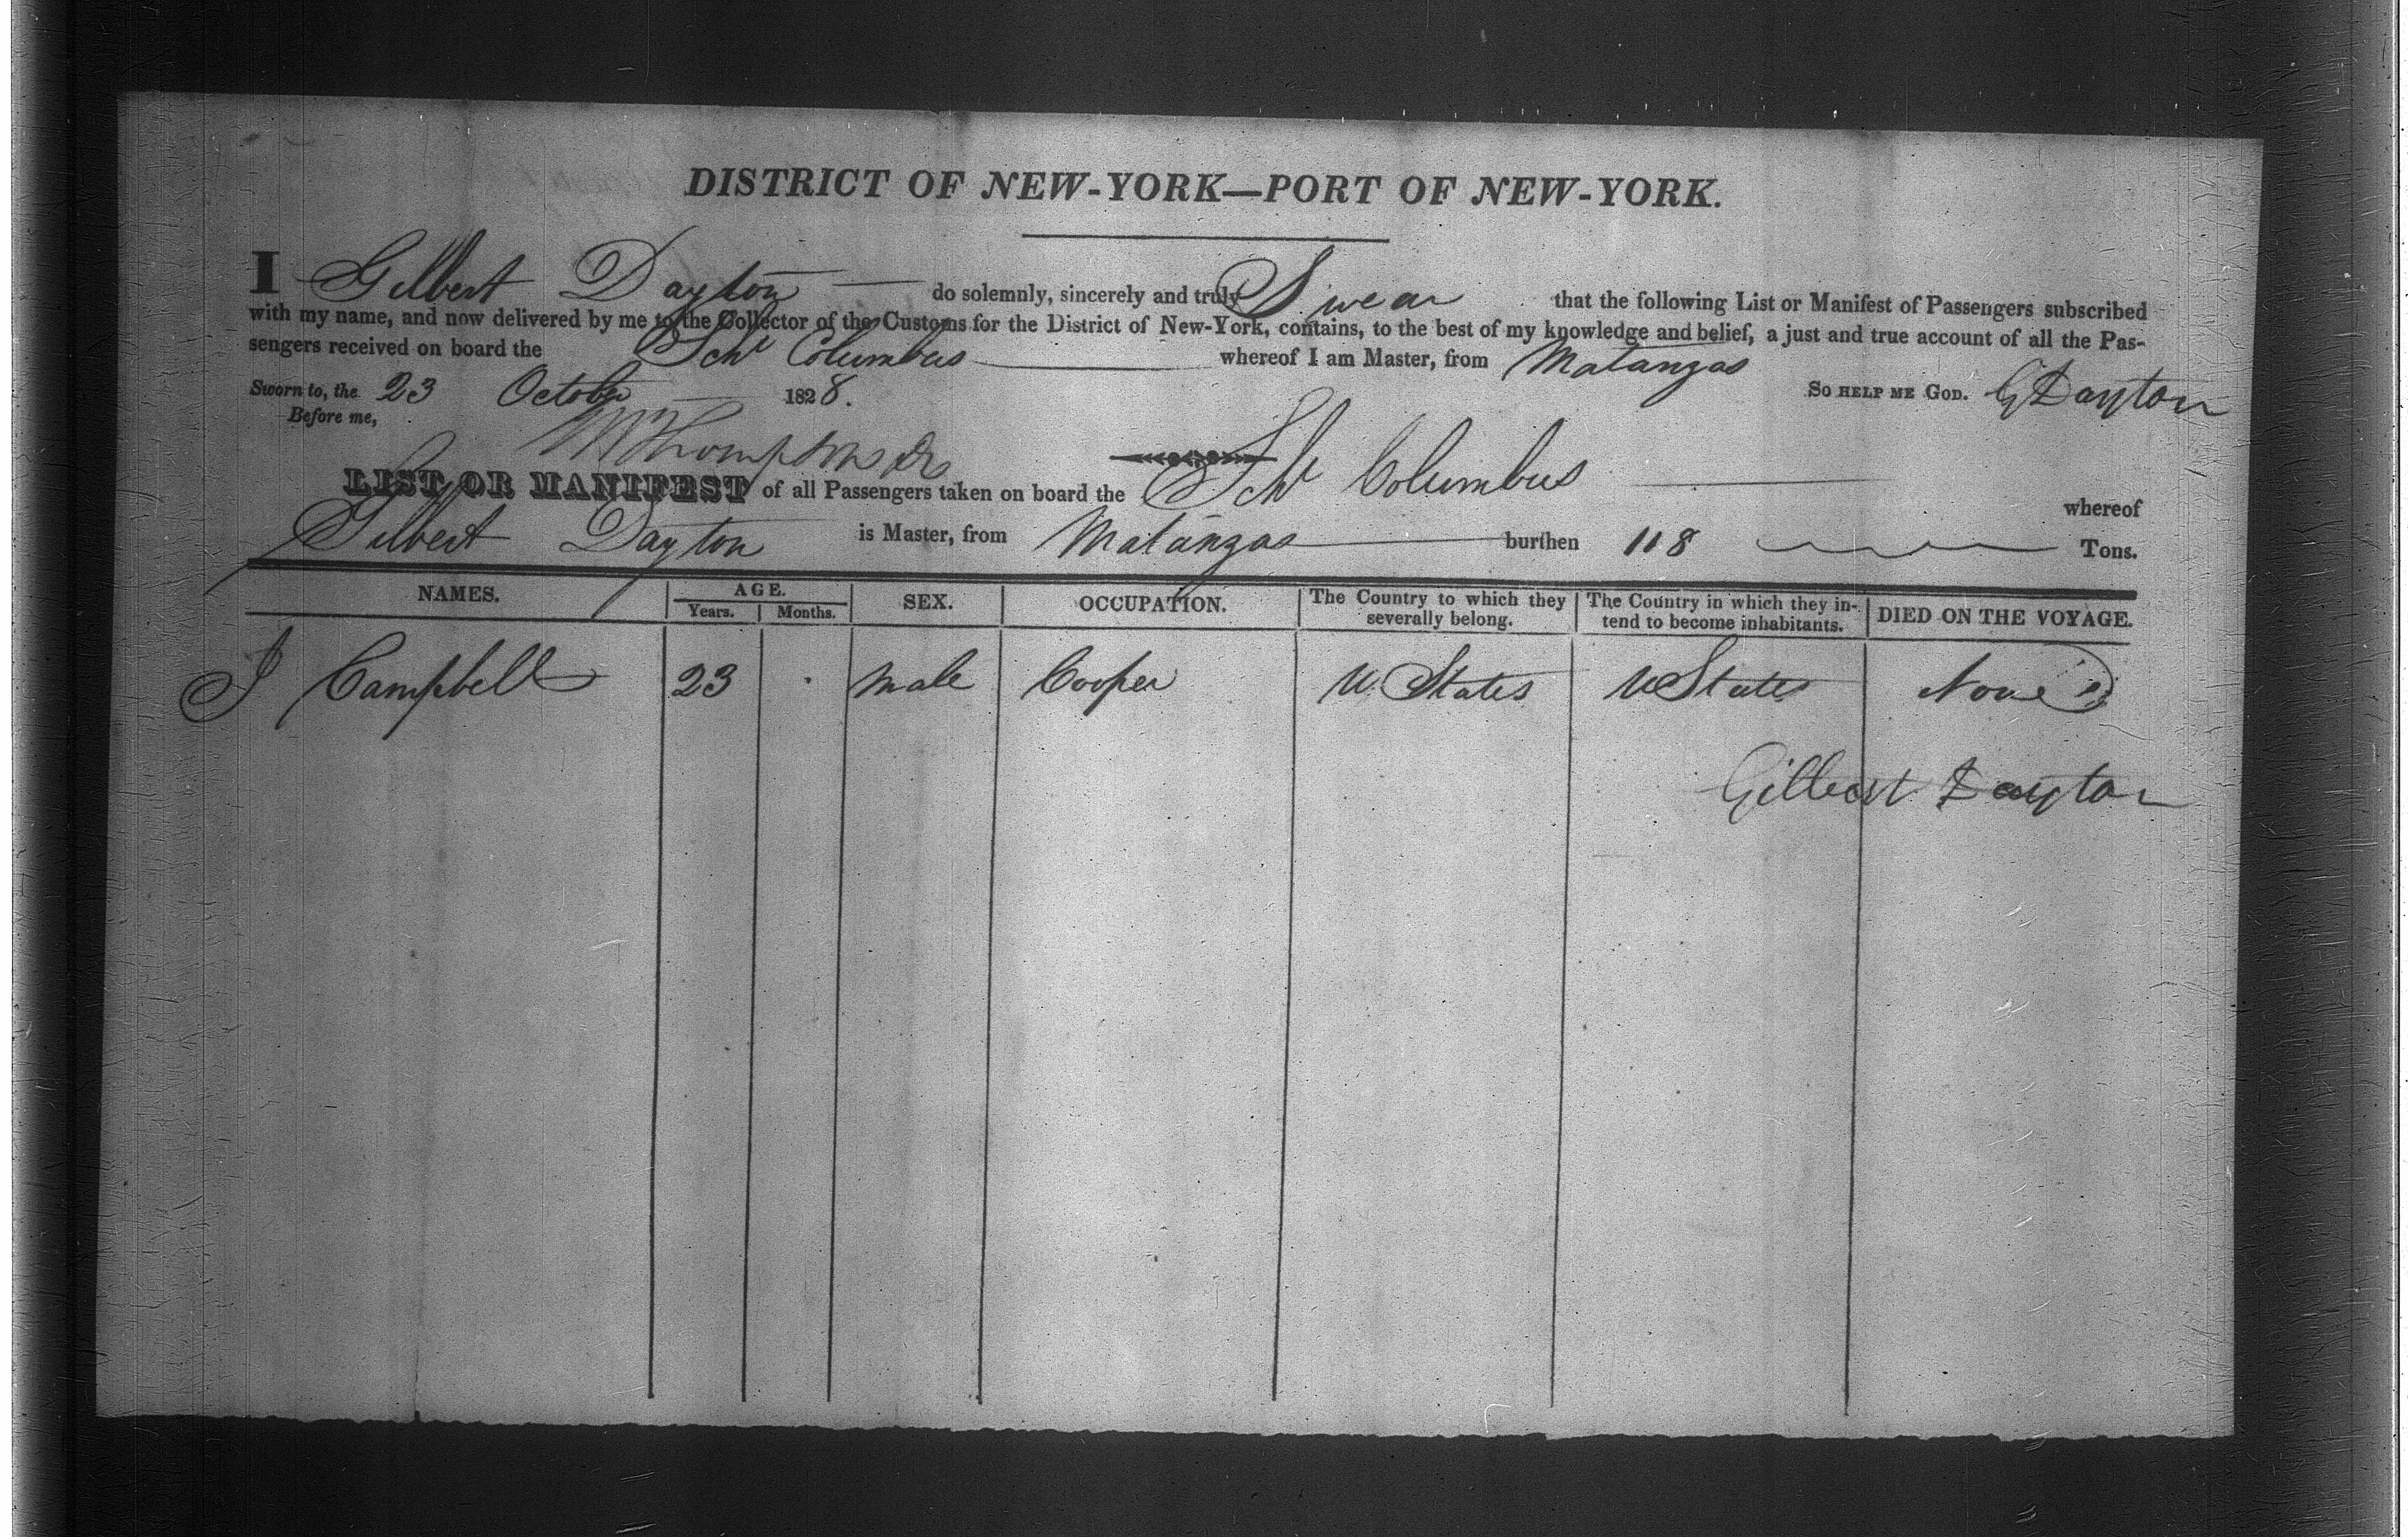 DISTRICT OF NEW-YORK—PORT OF NEW-YORK.
I Gilbert Dayton do solemnly, sincerely and truly Swear that the following List or Manifest of Passengers subscribed
with my name, and now delivered by me to the Collector of the Customs for the District of New-York, contains, to the best of my knowledge and belief, a just and true account of all the Pas-
sengers received on board the Schr Columbus whereof I am Master, from Matanzas
Sworn to, the 23 October 1828. So help me God. G Dayton
Before me,
W Thompson
LIST OR MANIFEST of all Passengers taken on board the Schr Columbus whereof
Gilbert Dayton is Master, from Matanzas burthen 118 Tons.
NAMES. AGE. Years. Months. SEX. OCCUPATION. The Country to which they severally belong. The Country in which they in-tend to become inhabitants. DIED ON THE VOYAGE.
J Campbell 23 male Cooper U. States U States None
Gilbert Dayton